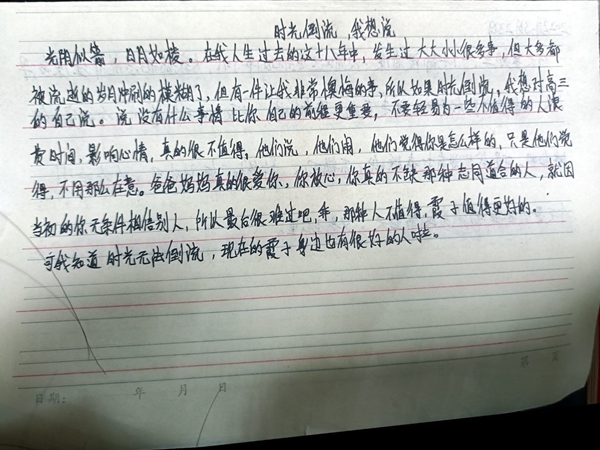 时光倒流,我想说
光阴似箭,日月如梭。在我人生过去的这十八年中,发生过大大小小很多事,但大多都
被流逝的岁月冲刷的模糊了,但有一件让我非常懊悔的事,所以如果时光倒流,我想对高三
的自己说。说,没有什么事情比你自己的前程更重要,不要轻易为一些不值得的人浪
费时间,影响心情,真的很不值得。他们说,他们闹,他们觉得你是怎么样的,只是他们觉
得,不用那么在意。爸爸妈妈真的很爱你,你放心,你真的不缺那种志同道合的人,就因
当初的你无条件相信别人,所以最后很难过吧,乖,那种人不值得,霞子值得更好的。
可我知道时光无法倒流,现在的霞子身边也有很好的人啦。
日期: 年 月 日
第 页